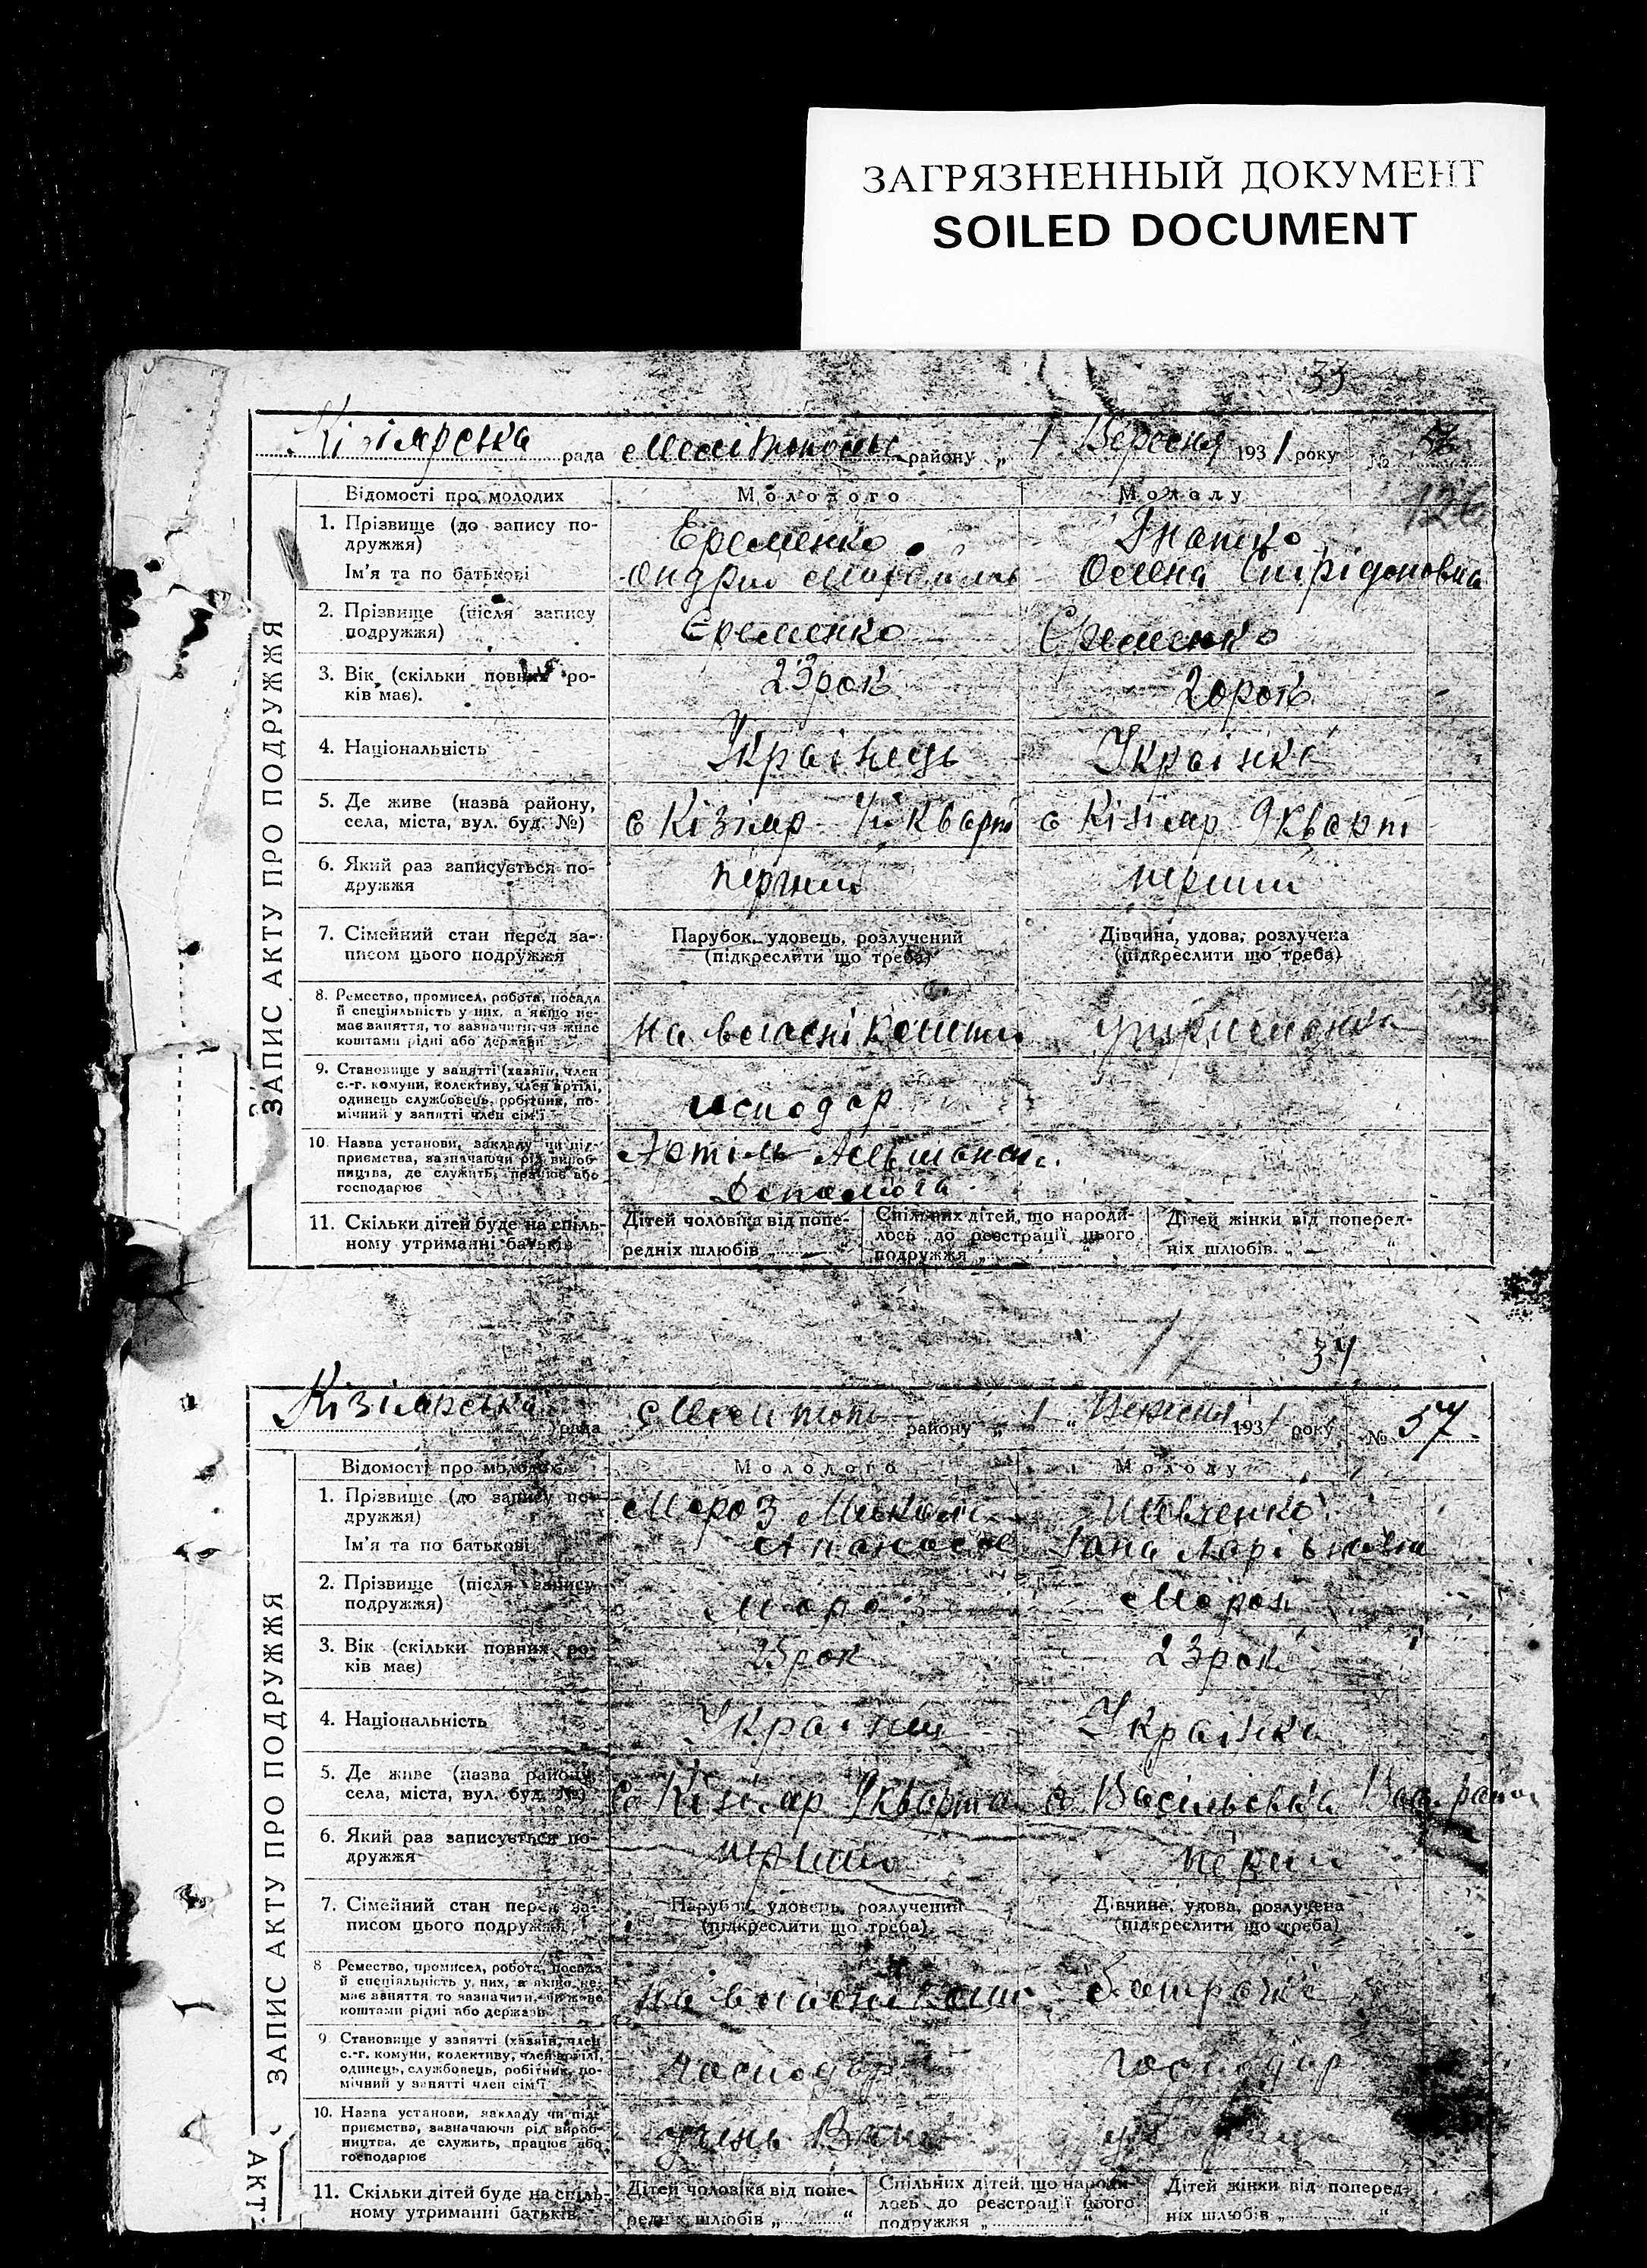 ЗАГРЯЗНЕННЫЙ ДОКУМЕНТ
SOILED DOCUMENT
33
Кізіярська рада району „ 1 Вересня 1931 року № 56
126
Відомості про молодих Молодого Молоду
1. Прізвище (до запису по- Еременко Гнатко
дружжя)
Ім'я та по батькові Олена Спірідоновна
2. Прізвище (після запису Єременко Єременко
подружжя)
3. Вік (скільки повних ро- 23 рок 20 рок
ків має).
4. Національність Українець Українка
5. Де живе (назва району, с Кізіяр Кварт с Кізіяр 9 Кварт
села, міста, вул. буд. №)
6. Який раз записується по- перший перший
дружжя
7. Сімейний стан перед за- Парубок, удовець, розлучений Дівчина, удова, розлучена
писом цього подружжя (підкреслити що треба) (підкреслити що треба)
8. Ремество, промисел, робота, посада
й спеціяльність у них, а якщо не-
має заняття, то зазначити, чи живе На власні кошти
коштами рідні або держави
9. Становище у занятті (хазяїн, член
с.-г. комуни, колективу, член артілі,
одинець службовець, робітник, по-
мічний у занятті член сім'ї
10. Назва установи, закладу чи під- Артіль
приємства, зазначаючи рід вироб-
ництва, де служить, працює або Допомога
господарює
11. Скільки дітей буде на спіль- Дітей чоловіка від попе- Спільних дітей, що народи- Дітей жінки від поперед-
ному утриманні батьків редніх шлюбів „ — лось до реєстрації цього ніх шлюбів „ — “
подружжя „ “
ЗАПИС АКТУ ПРО ПОДРУЖЖЯ
34
Кізіярська рада району „ 1 „ Вересня 1931 року № 57
Відомості про молодих Молодого Молоду
1. Прізвище (до запису по- Мороз Шевченко
дружжя)
Ім'я та по батькові
2. Прізвище (після запису Мороз Мороз
подружжя)
3. Вік (скільки повних ро- 25 рок 23 рок
ків має)
4. Національність Українка
5. Де живе (назва району, с Кізіяр 9 кварта с Васільєвка Вас. район
села, міста, вул. буд. №)
6. Який раз записується по- перший
дружжя
7. Сімейний стан перед за- Парубок, удовець, розлучений Дівчина, удова, розлучена
писом цього подружжя (підкреслити що треба) (підкреслити що треба)
8 Ремество, промисел, робота, посада
й спеціяльність у них, а якщо не-
має заняття то зазначити, чи живе На власні кош
коштами рідні або держави
9 Становище у занятті (хазяїн, член
с.-г. комуни, колективу, член артілі, господар господар
одинець, службовець, робітник, по-
мічний у занятті член сім'ї
10. Назва установи, закладу чи під-
приємства, зазначаючи рід вироб-
ництва, де служить, працює або
господарює
11. Скільки дітей буде на спіль- Дітей чоловіка від попе- Спільних дітей, що народи- Дітей жінки від поперед-
ному утриманні батьків редніх шлюбів „ “ лось до реєстрації цього ніх шлюбів „ “
подружжя „ “
ЗАПИС АКТУ ПРО ПОДРУЖЖЯ
АКТ